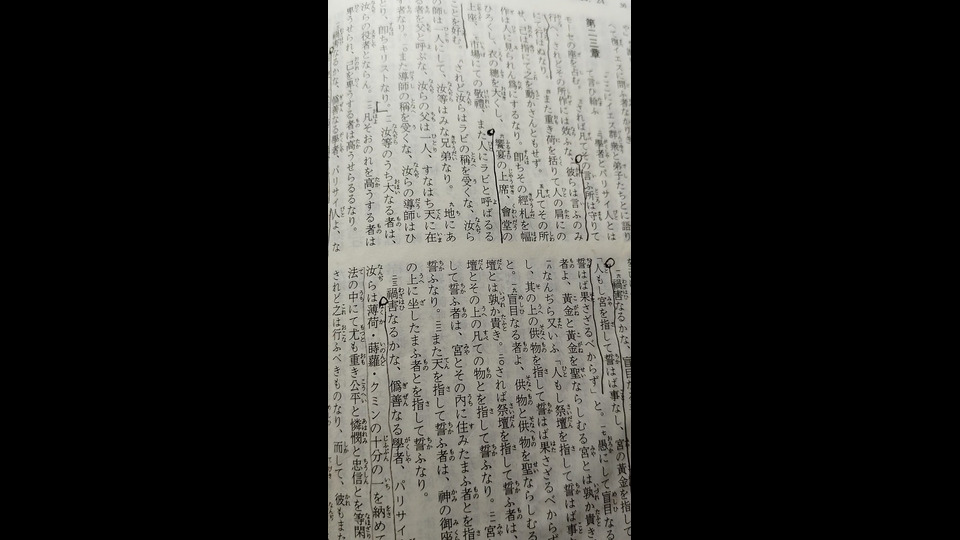 第二三章
モーセの座を占む。されば凡てその言ふ所は守りて
されどその所作には效ふな。彼らは言ふのみ
にて行はぬなり。また重き荷を括りて人の肩にの
せ、己は指にて之を動かさんともせず。凡てその所
作は人に見られん爲にするなり。即ちその經札を幅
ひろくし、衣の總を大くし、饗宴の上席、會堂の
上座、市場にての敬禮、また人にラビと呼ばるる
ことを好む。されど汝らはラビの稱を受くな、汝ら
の師は一人にして、汝等はみな兄弟なり。九地にあ
る者を父と呼ぶな、汝らの父は一人、すなはち天に在
す者なり。また導師の稱を受くな、汝らの導師はひ
とり、即ちキリストなり。二汝等のうち大なる者は、
汝らの役者とならん。三凡そおのれを高うする者は
卑うせられ、己を卑うする者は高うせらるるなり。
禍害なるかな、僞善なる學者、パリサイ人よ、な
一六禍害なるかな、盲目なる
「人もし宮を指して誓はば事なし、宮の黄金を指して
誓はば果さざるべからず」と。一七愚にして盲目なる
者よ、黄金と黄金を聖ならしむる宮とは孰か貴き。
一八なんぢら又いふ「人もし祭壇を指して誓はば事な
し、其の上の供物を指して誓はば果さざるべからず」
と。一九盲目なる者よ、供物と供物を聖ならしむる祭
壇とは孰か貴き。二〇されば祭壇を指して誓ふ者は、祭
壇とその上の凡ての物とを指して誓ふなり。二一宮を指
して誓ふ者は、宮とその内に住みたまふ者とを指して
誓ふなり。二二また天を指して誓ふ者は、神の御座とそ
の上に坐したまふ者とを指して誓ふなり。
二三禍害なるかな、僞善なる學者、パリサイ
汝らは薄荷・蒔蘿・クミンの十分の一を納めて
法の中にて尤も重き公平と憐憫と忠信とを等閑
されど之は行ふべきものなり、而して、彼もまた